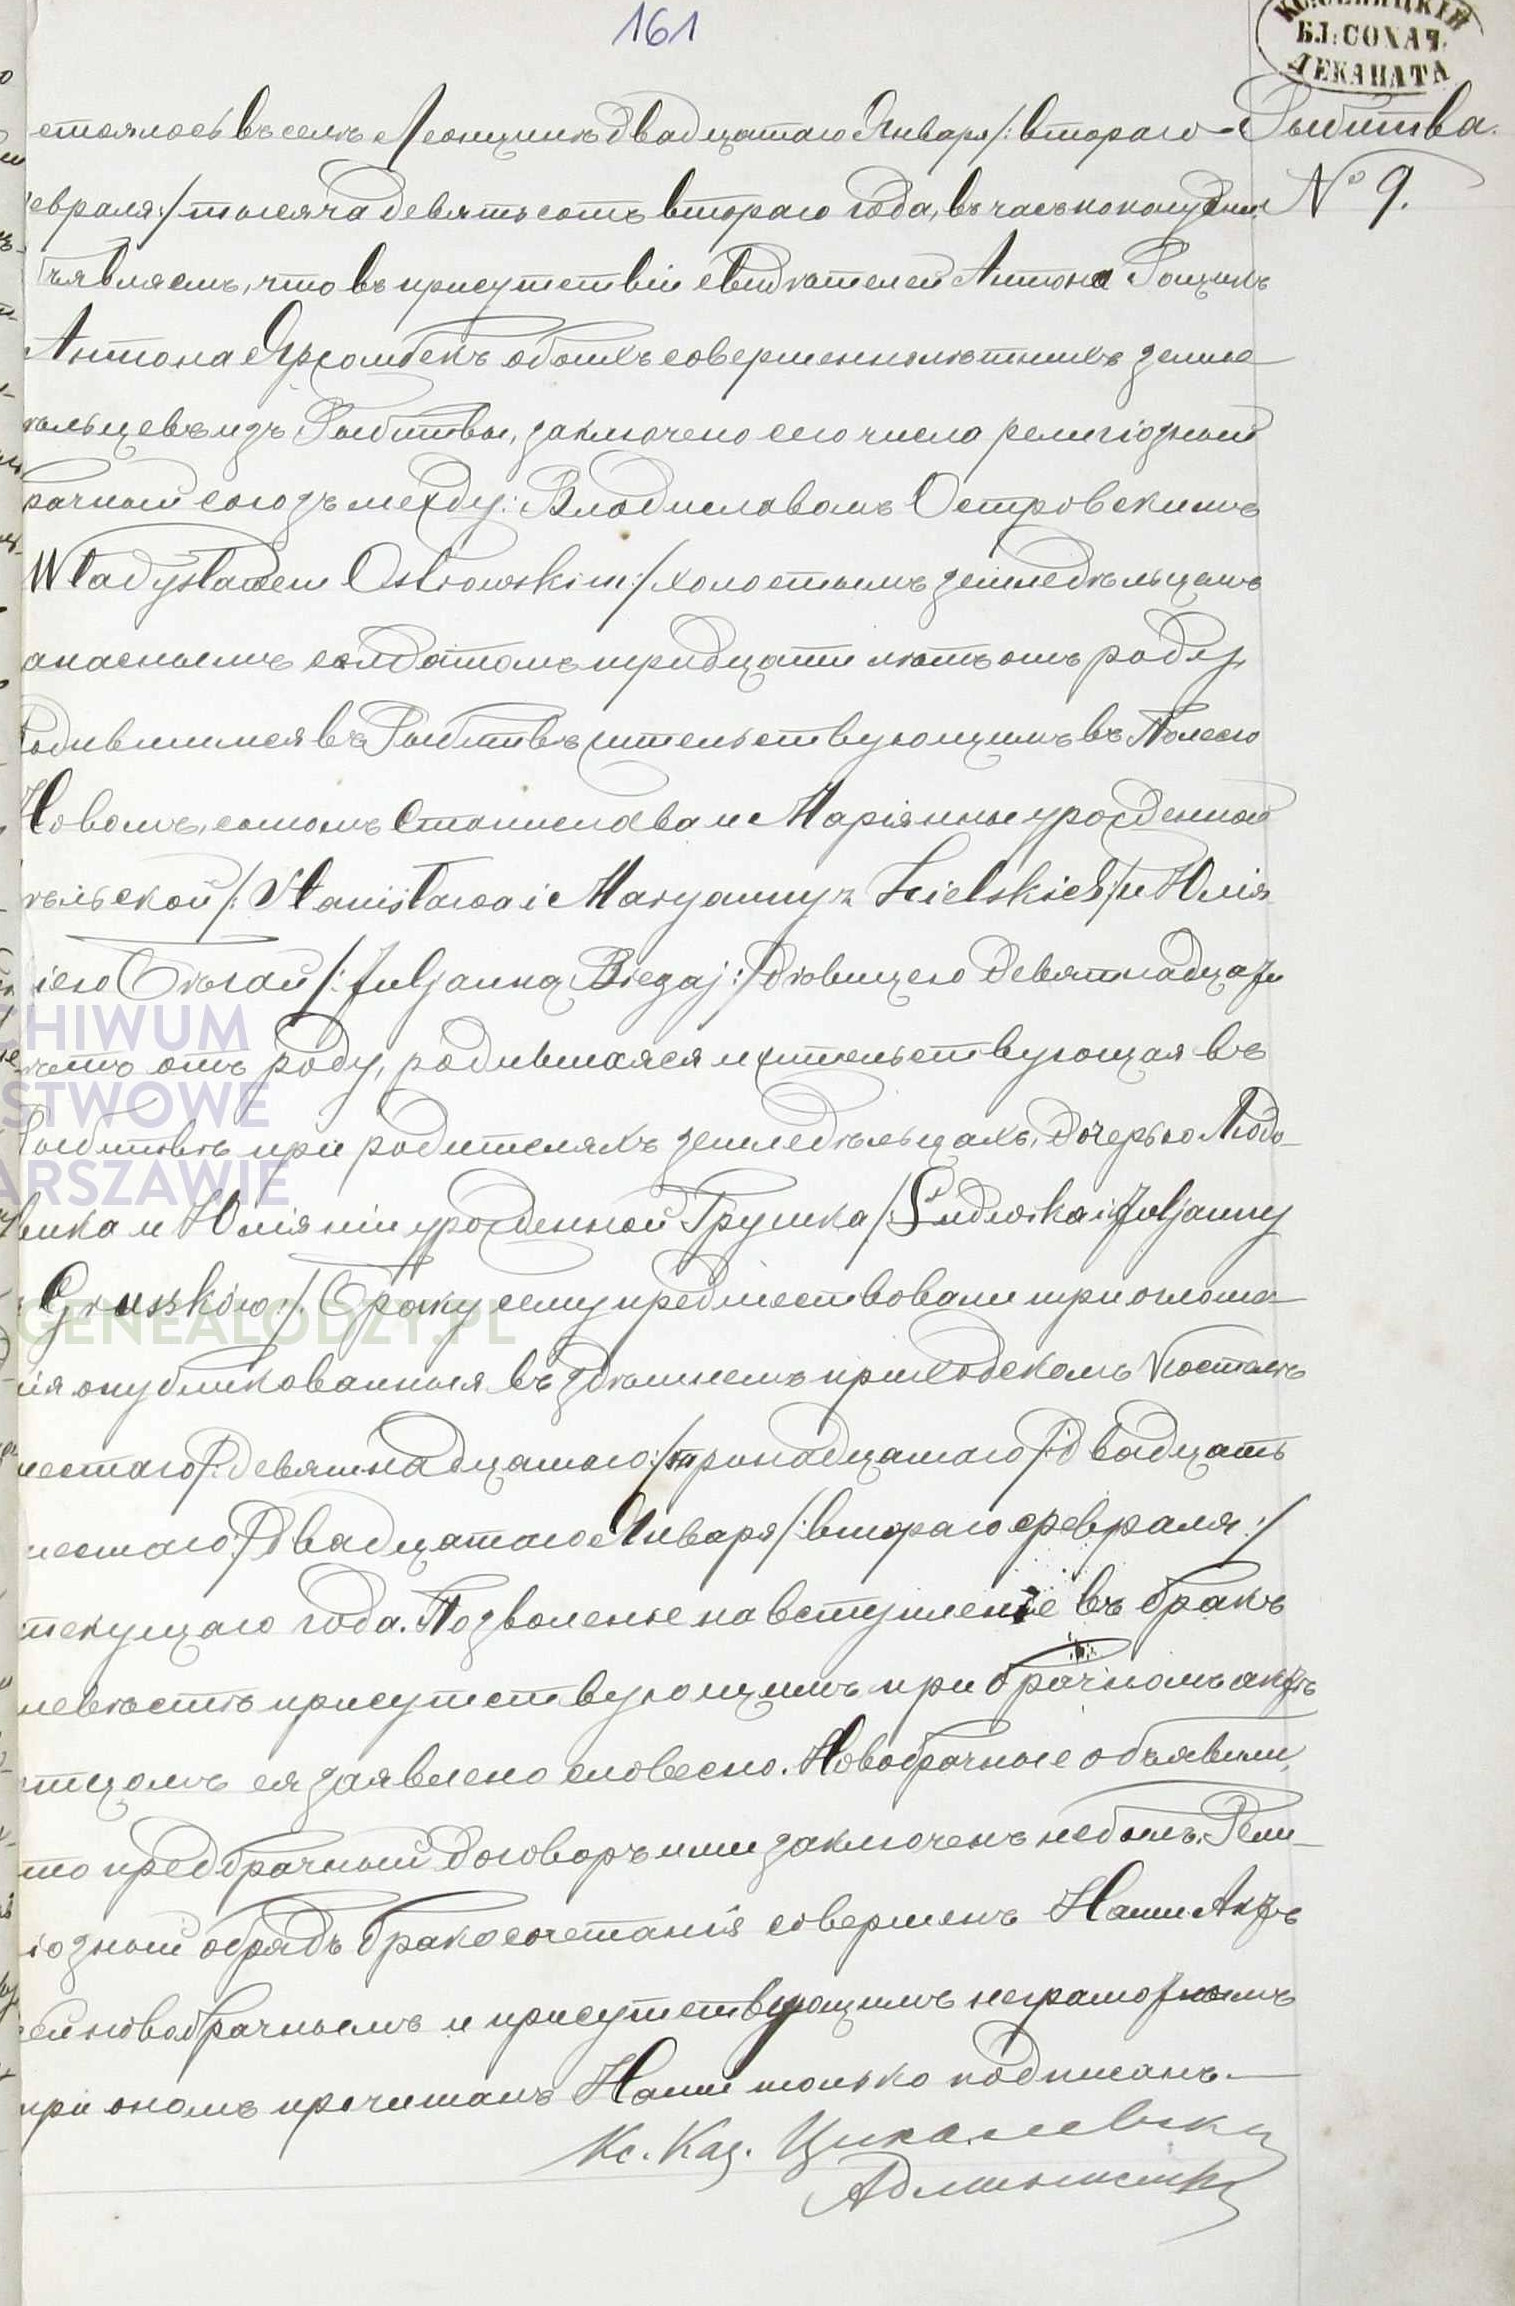 161
БЛ: СОХАЧ.
ДЕКАНАТА
Рыбитва.
№ 9.
стоялось въ селѣ Леонцинѣ двадцатаго Января /: втораго
евраля:/ тысяча девятьсотъ втораго года, въ часъ пополудни
ъявляемъ, что въ присутствіи свидѣтелей Антона
Антона обоихъ совершеннолѣтнихъ земле
ѣльцевъ изъ Рыбитвы, заключено сего числа религіозный
рачный союзъ между: Владиславомъ Островскимъ
Władysławem Ostrowskim:/ холостымъ земледѣльцемъ
апаснымъ солдатомъ тридцати лѣтъ отъ роду,
одившимся въ Рыбитвѣ жительствующимъ въ Полесю
Новомъ, сыномъ Станислава и Маріянны урожденной
ѣльской /: Stanisława i Maryanny z Zielskich :/ и Юлія
іею Бѣгай /: Juljanną Biegaj :/ дѣвицею девятнадцати
ѣтъ отъ роду, родившаяся и жительствующая въ
Рыбитвѣ при родителяхъ земледѣльцахъ, дочерью Людо-
вика и Юліянны урожденной Грушка /: Ludwika i Juljanny
Gruszków :/. Браку сему предшествовали три оглоше-
ія опубликованныя въ здѣшнемъ приходскомъ Костелѣ
шестаго /: девятнадцатаго :/ тринадцатаго /: двадцать
шестаго :/ двадцатаго Января /: втораго февраля :/
текущаго года. Позволеніе на вступленіе въ бракъ
невѣстѣ присутствующимъ при брачномъ актѣ
отцомъ ея заявлено словесно. Новобрачные объявили,
то предбрачный договоръ ими заключенъ не былъ. Рели-
іозный обрядъ бракосочетанія совершенъ Нами Актъ
сей новобрачнымъ и присутствующимъ неграмотнымъ
при ономъ прочитанъ Нами только подписанъ.—
Кс. Каз.